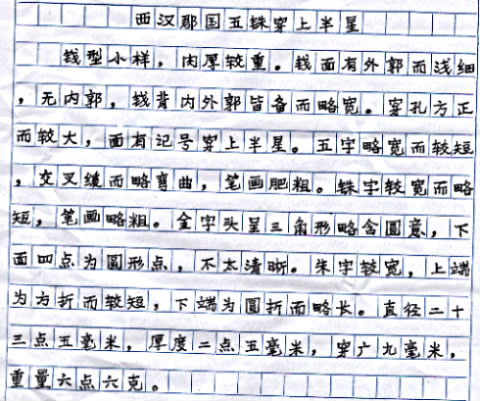 西汉郡国五铢穿上半星
钱型小样，肉厚较重。钱面有外郭而浅细
，无内郭，钱背内外郭皆备而略宽。穿孔方正
而较大，面有记号穿上半星。五字略宽而较短
，交叉缓而略弯曲，笔画肥粗。铢字较宽而略
短，笔画略粗。金字头呈三角形略含圆意，下
面四点为圆形点，不太清晰。朱字较宽，上端
为方折而较短，下端为圆折而略长。直径二十
三点五毫米，厚度二点五毫米，穿广九毫米，
重量六点六克。